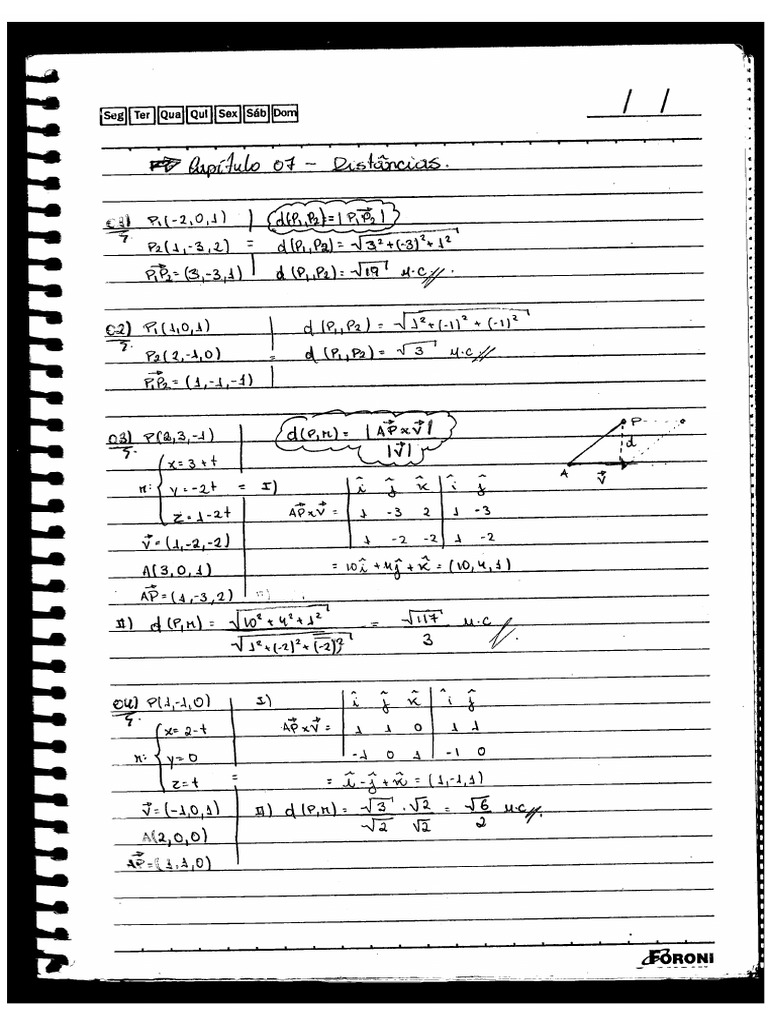 Seg Ter Qua Qui Sex Sáb Dom / /
⇒ Capítulo 07 - Distâncias.
01) P₁(-2,0,1) | d(P₁,P₂)=|P₁P₂|
P₂(1,-3,2) = d(P₁,P₂)=√3²+(-3)²+1²
P₁P₂=(3,-3,1) d(P₁,P₂)=√19 u.c.
02) P₁(1,0,1) d(P₁,P₂)=√1²+(-1)²+(-1)²
P₂(2,-1,0) = d(P₁,P₂)=√3 u.c
P₁P₂=(1,-1,-1)
03) P(2,3,-1) d(P,r)= |AP×V| P
x=3+t |V| d
r: y=-2t = I) i j k i j A V
z=1-2t AP×V= 1 -3 2 1 -3
V=(1,-2,-2) 1 -2 -2 1 -2
A(3,0,1) =10i+4j+k=(10,4,1)
AP=(1,-3,2) =)
II) d(P,r)= √10²+4²+1² = √117 u.c
√1²+(-2)²+(-2)² 3
04) P(1,-1,0) I) i j k i j
x=2-t AP×V= 1 1 0 1 1
r: y=0 -1 0 1 -1 0
z=t = =i-j+k=(1,-1,1)
V=(-1,0,1) II) d(P,r)= √3 . √2 = √6 u.c
√2 √2 2
A(2,0,0)
AP=(1,1,0)
FORONI